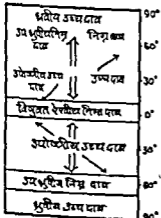 ध्रुवीय उच्च दाब
90°
उप ध्रुवीय निम्न दाब
60°
उपोष्णीय उच्च दाब
उच्च दाब
30°
विषुवत रेखीय निम्न दाब
0°
उपोष्णीय उच्च दाब
30°
उप ध्रुवीय निम्न दाब
60°
ध्रुवीय उच्च दाब
90°